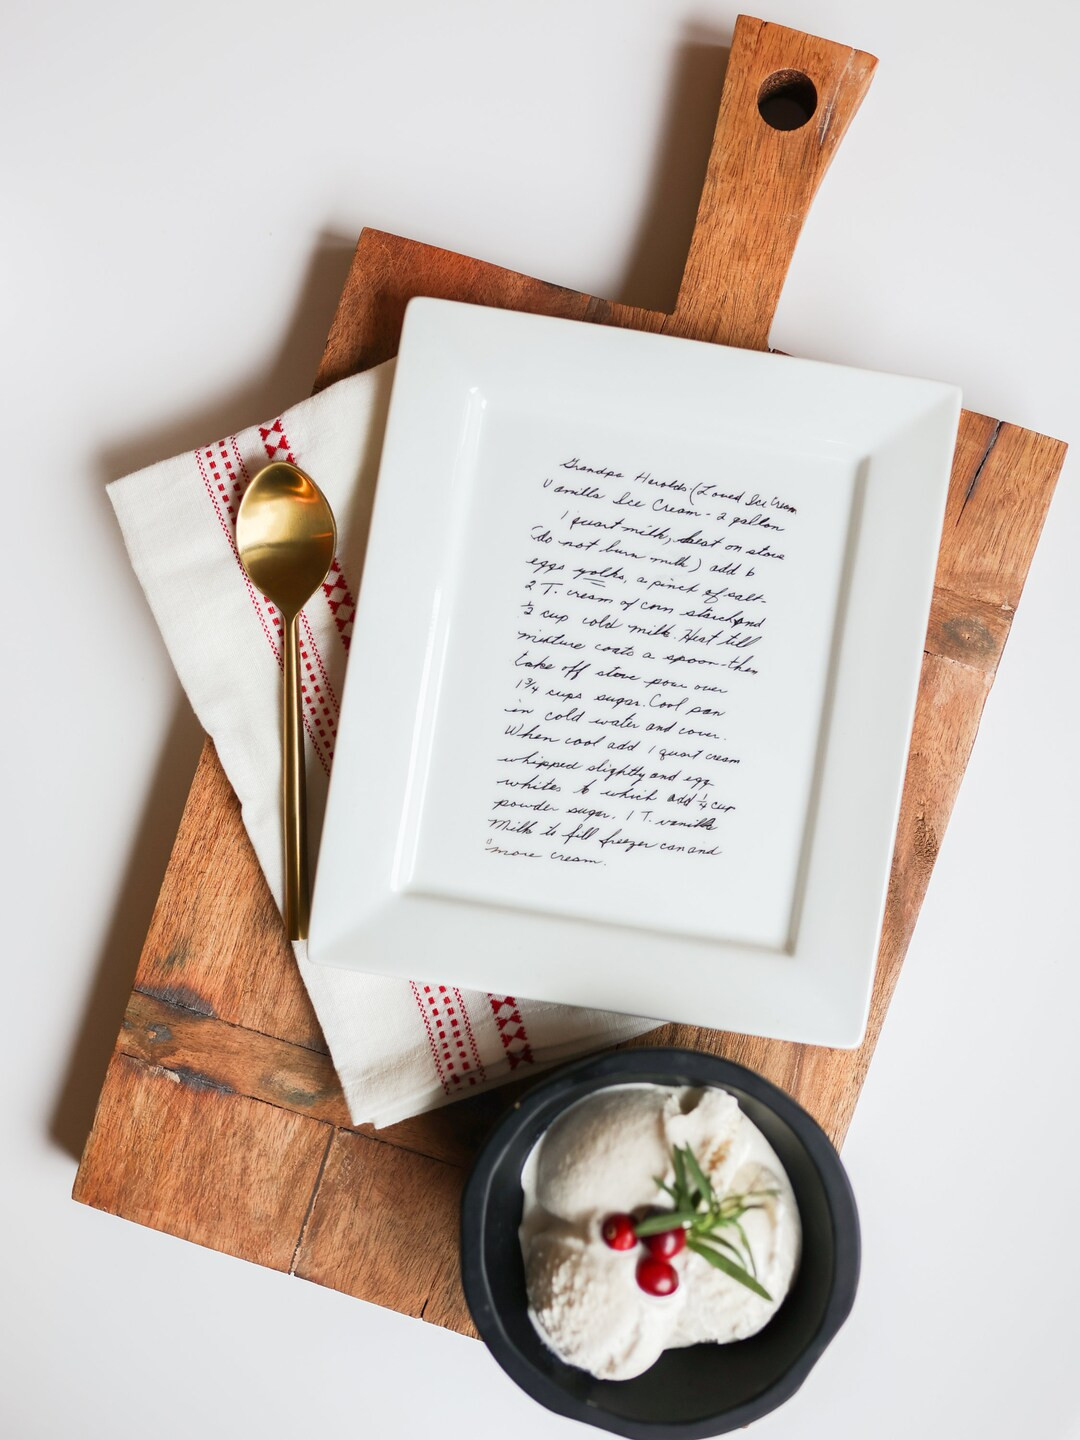 Grandpa Harolds (Loved Ice Cream
Vanilla Ice Cream - 2 gallon
1 quart milk, heat on stove
(do not burn milk) add 6
eggs yolks, a pinch of salt-
2 T. cream of corn starch and
½ cup cold milk. Heat till
mixture coats a spoon-then
take off stove pour over
1¾ cups sugar. Cool pan
in cold water and cover.
When cool add 1 quart cream
whipped slightly and egg
whites to which add ¼ cup
powder sugar. 1 T. vanilla
Milk to fill freezer can and
"more cream.